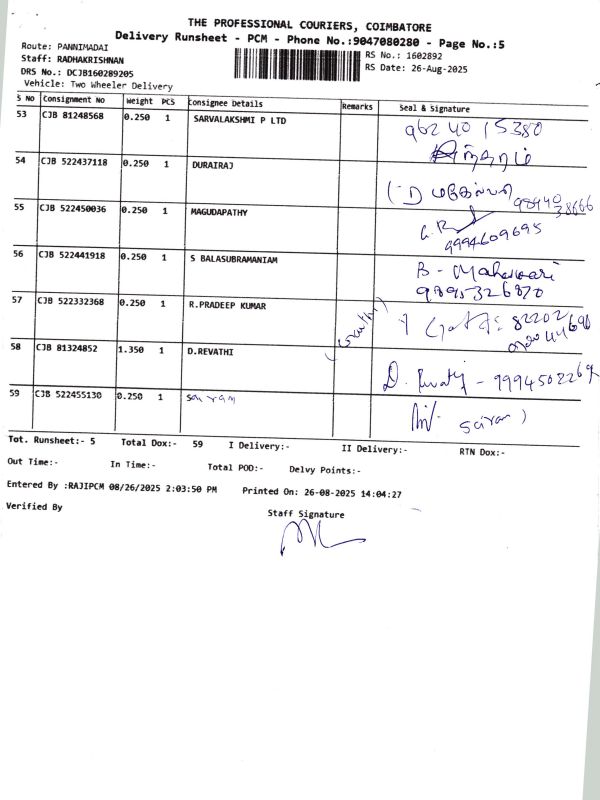 THE PROFESSIONAL COURIERS, COIMBATORE
Delivery Runsheet - PCM - Phone No.:9047080280 - Page No.:5
Route: PANNIMADAI
RS No.: 1602892
Staff: RADHAKRISHNAN
RS Date: 26-Aug-2025
DRS No.: DCJB160289205
Vehicle: Two Wheeler Delivery
S NO Consignment No Weight PCS Consignee Details Remarks Seal & Signature
53 CJB 81248568 0.250 1 SARVALAKSHMI P LTD 9624015380
54 CJB 522437118 0.250 1 DURAIRAJ
55 CJB 522450036 0.250 1 MAGUDAPATHY 9994609695
56 CJB 522441918 0.250 1 S BALASUBRAMANIAM B - Maheswari
9895326870
57 CJB 522332368 0.250 1 R.PRADEEP KUMAR
58 CJB 81324852 1.350 1 D.REVATHI D.
59 CJB 522455130 0.250 1 sairam sairam
Tot. Runsheet:- 5 Total Dox:- 59 I Delivery:- II Delivery:- RTN Dox:-
Out Time:- In Time:- Total POD:- Delvy Points:-
Entered By :RAJIPCM 08/26/2025 2:03:50 PM Printed On: 26-08-2025 14:04:27
Verified By
Staff Signature